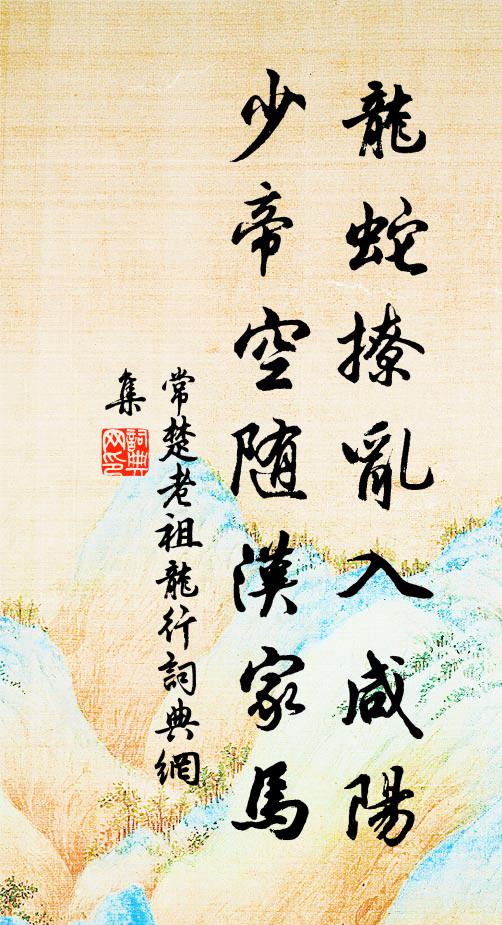 龍蛇撩亂入咸陽
少帝空随漢家馬
常楚老祖龍行詞典網
集
詞典
网印